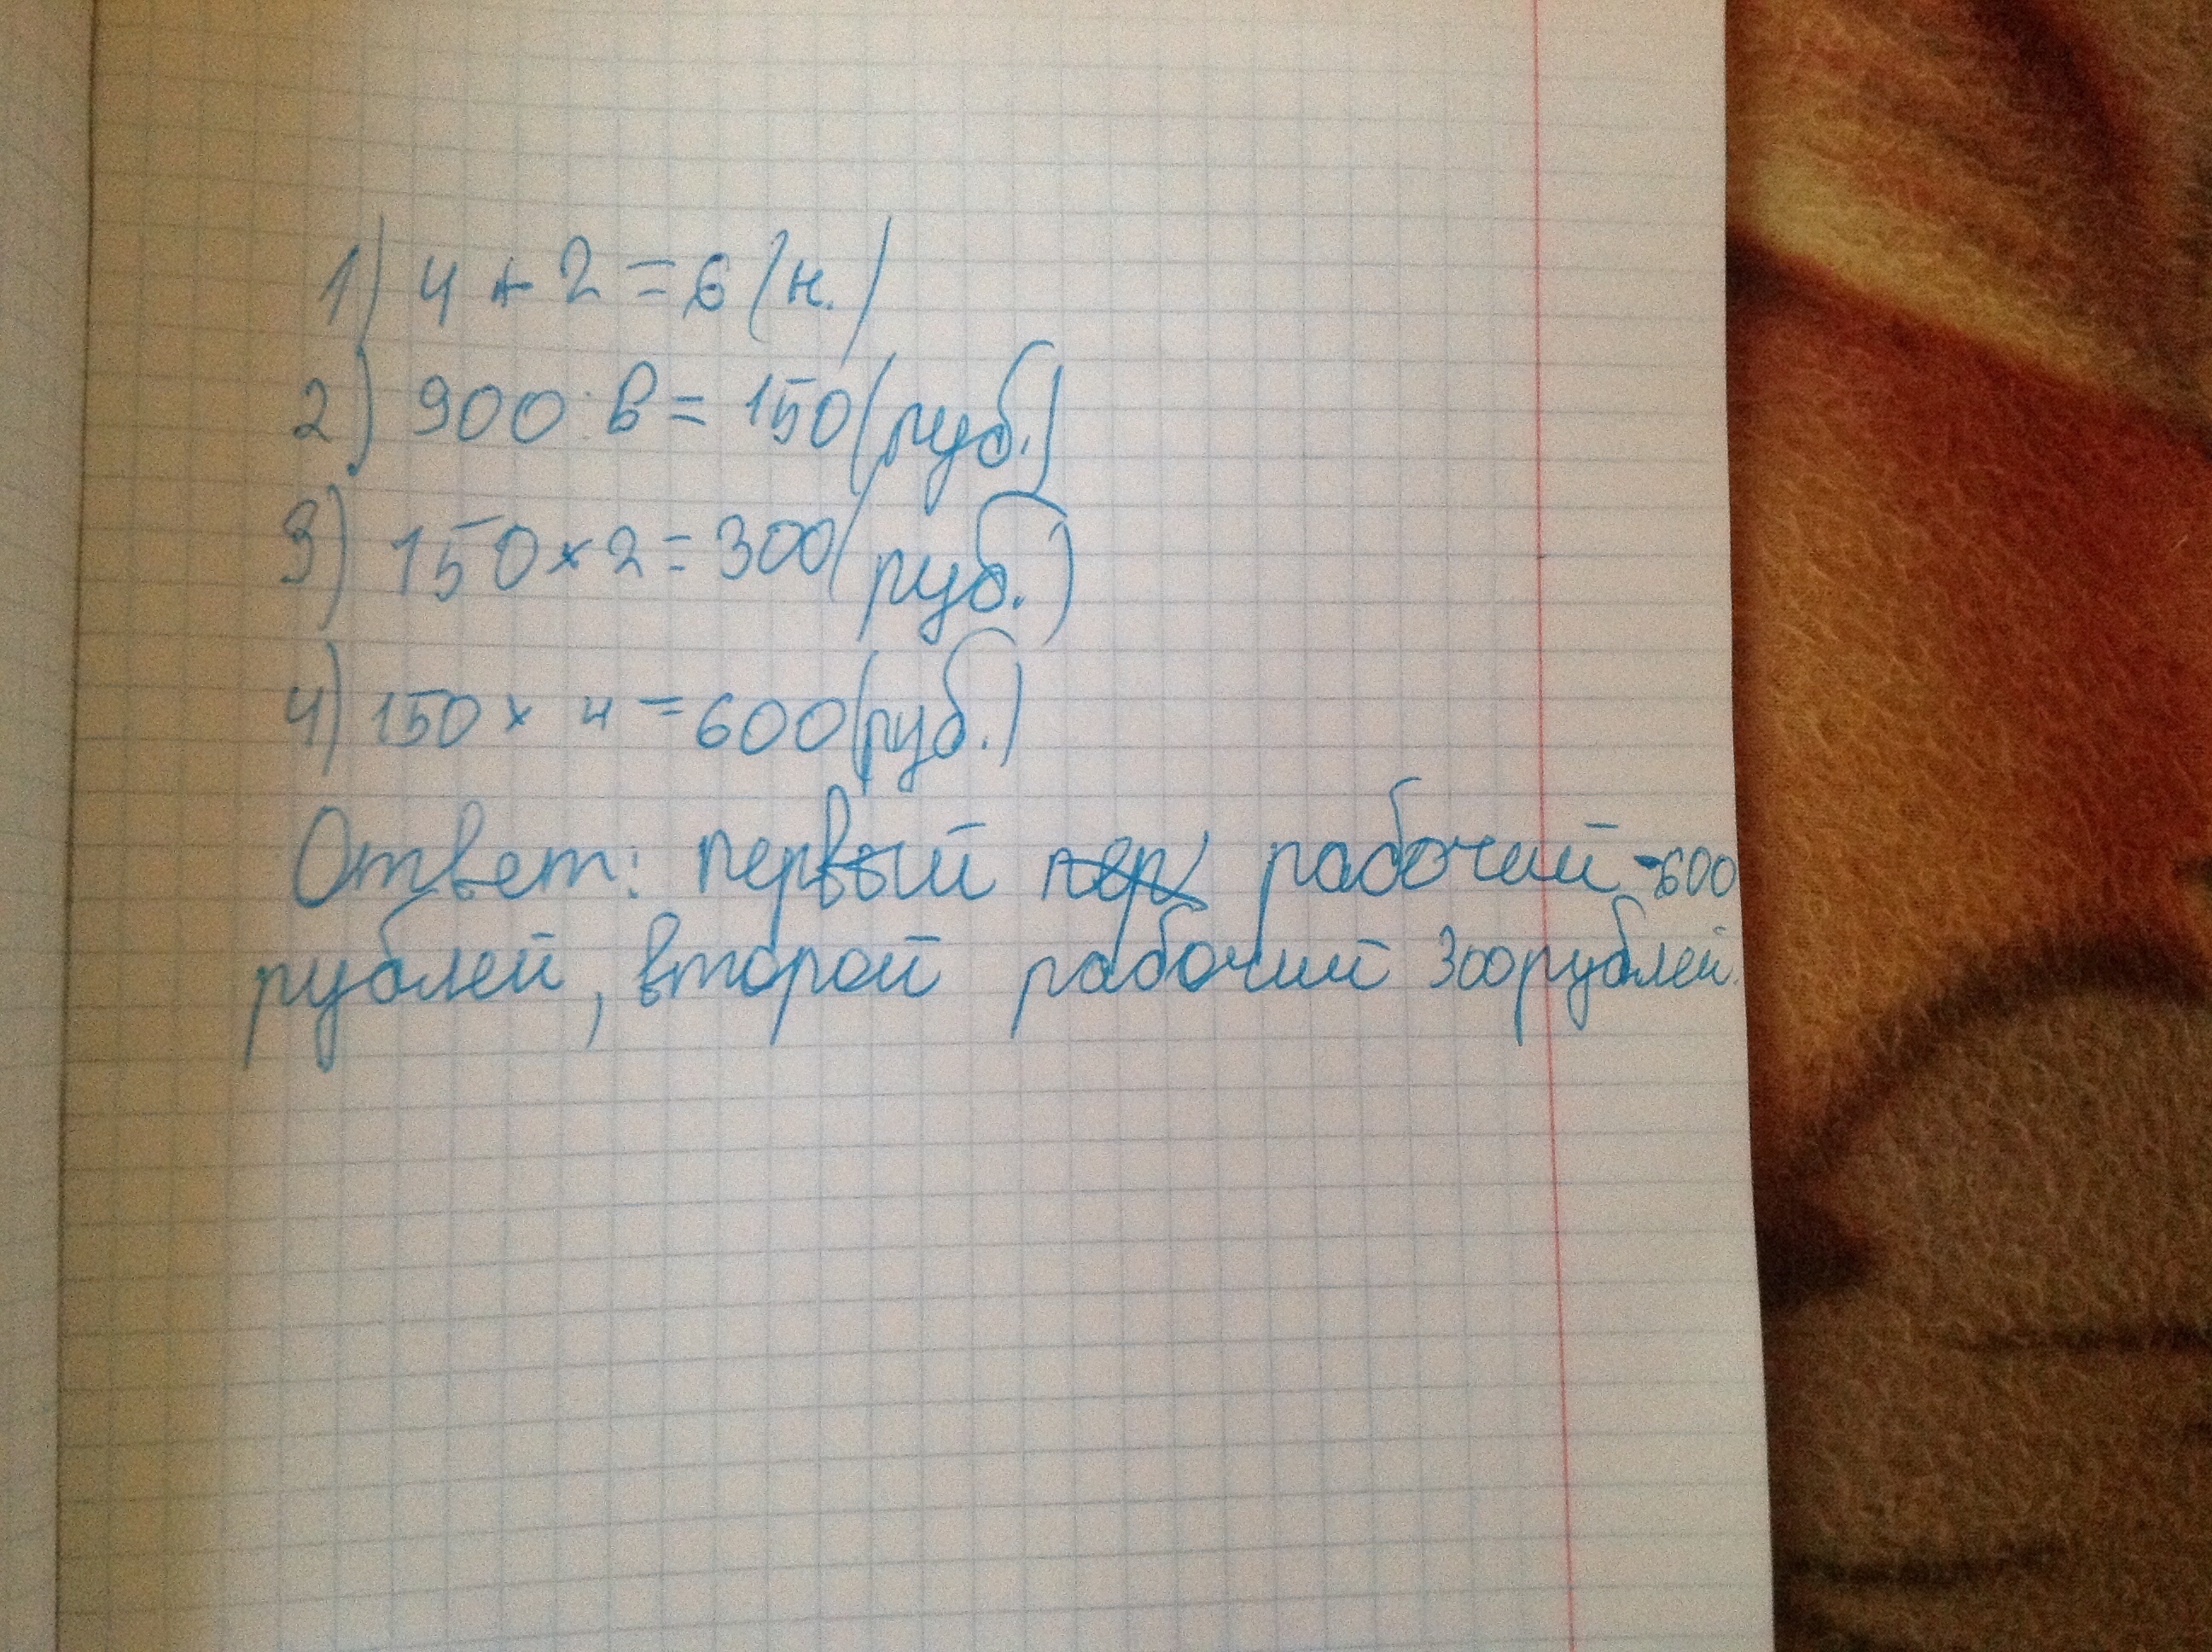 1) 4 + 2 = 6 (н.)
2) 900 : 6 = 150 (руб.)
3) 150 × 2 = 300 (руб.)
4) 150 × 4 = 600 (руб.)
Ответ: первый пер рабочий - 600
рублей, второй рабочий 300 рублей.